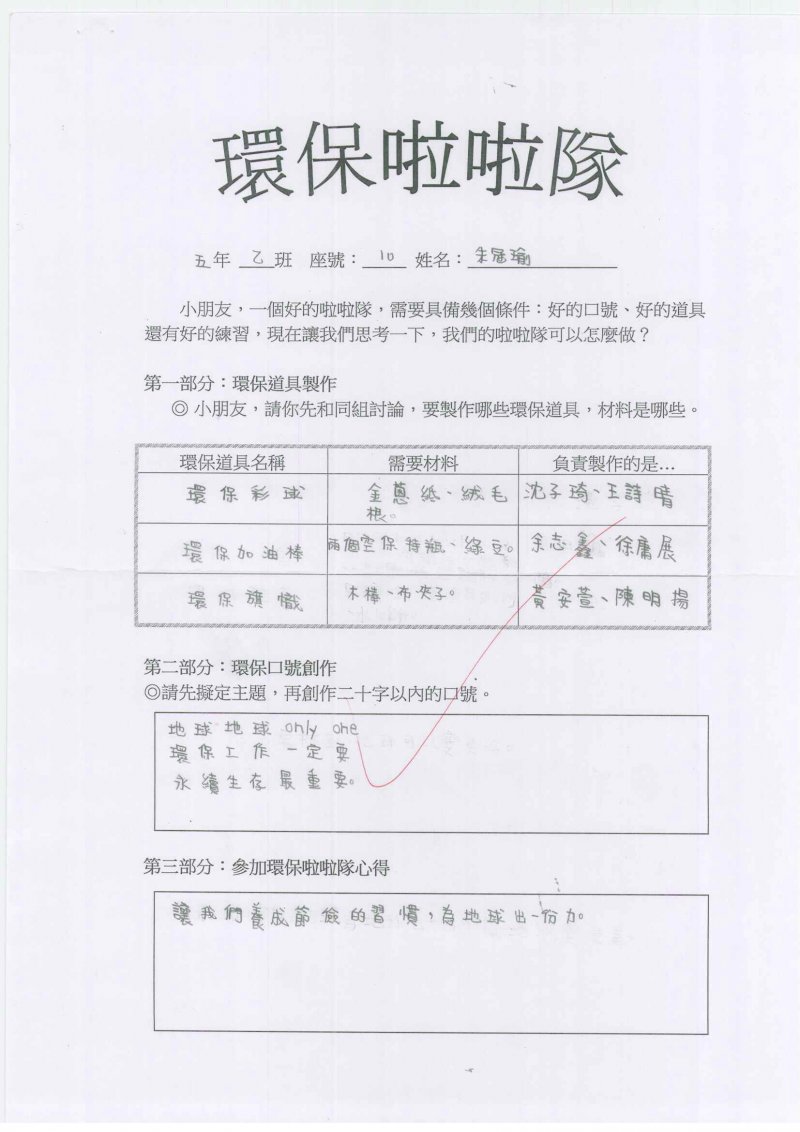 環保啦啦隊
五年 乙 班 座號： 10 姓名：朱冠瑜
小朋友，一個好的啦啦隊，需要具備幾個條件：好的口號、好的道具
還有好的練習，現在讓我們思考一下，我們的啦啦隊可以怎麼做？
第一部分：環保道具製作
◎ 小朋友，請你先和同組討論，要製作哪些環保道具，材料是哪些。
環保道具名稱 需要材料 負責製作的是...
環保彩球 金蔥紙、絨毛 沈子琦、王詩晴
根。
環保加油棒 兩個空保特瓶、綠豆。 余志鑫、徐庸展
環保旗幟 木棒、布、夾子。 黃安萱、陳明揚
第二部分：環保口號創作
◎請先擬定主題，再創作二十字以內的口號。
地球地球 only one
環保工作一定要
永續生存最重要。
第三部分：參加環保啦啦隊心得
讓我們養成節儉的習慣，為地球出一份力。